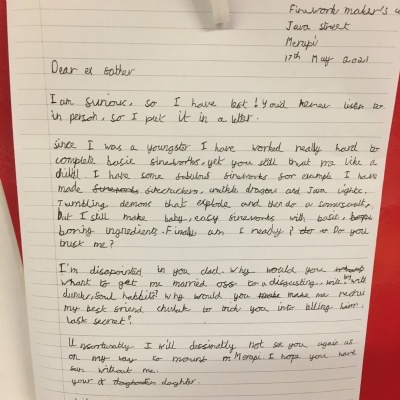 Firework maker's
Java street
Merapi
17th May 2021
Dear ex father
I am furious, so I have left! You'd never listen
in person, so I put it in a letter.
since I was a youngster I have worked really hard to
complete basic fireworks, yet you still treat me like a
child! I have some fabulous fireworks for example I have
made firecrackers, dragons and Java lights.
Tumbling demons that explode and then do a somersault,
But I still make baby, easy fireworks with basic,
boring ingredients. Finaly am I ready? Do you
trust me?
I'm disapointed in you dad. Why would you
whant to get me married off to a disgusting, with
foul habbits? Why would you make me
my best friend chulak to trick you into telling him
last secret?
Unforturnatly I will deffinatly not see you again as
on my way to mount Merapi. I hope you have
fun without me.
your daughter.